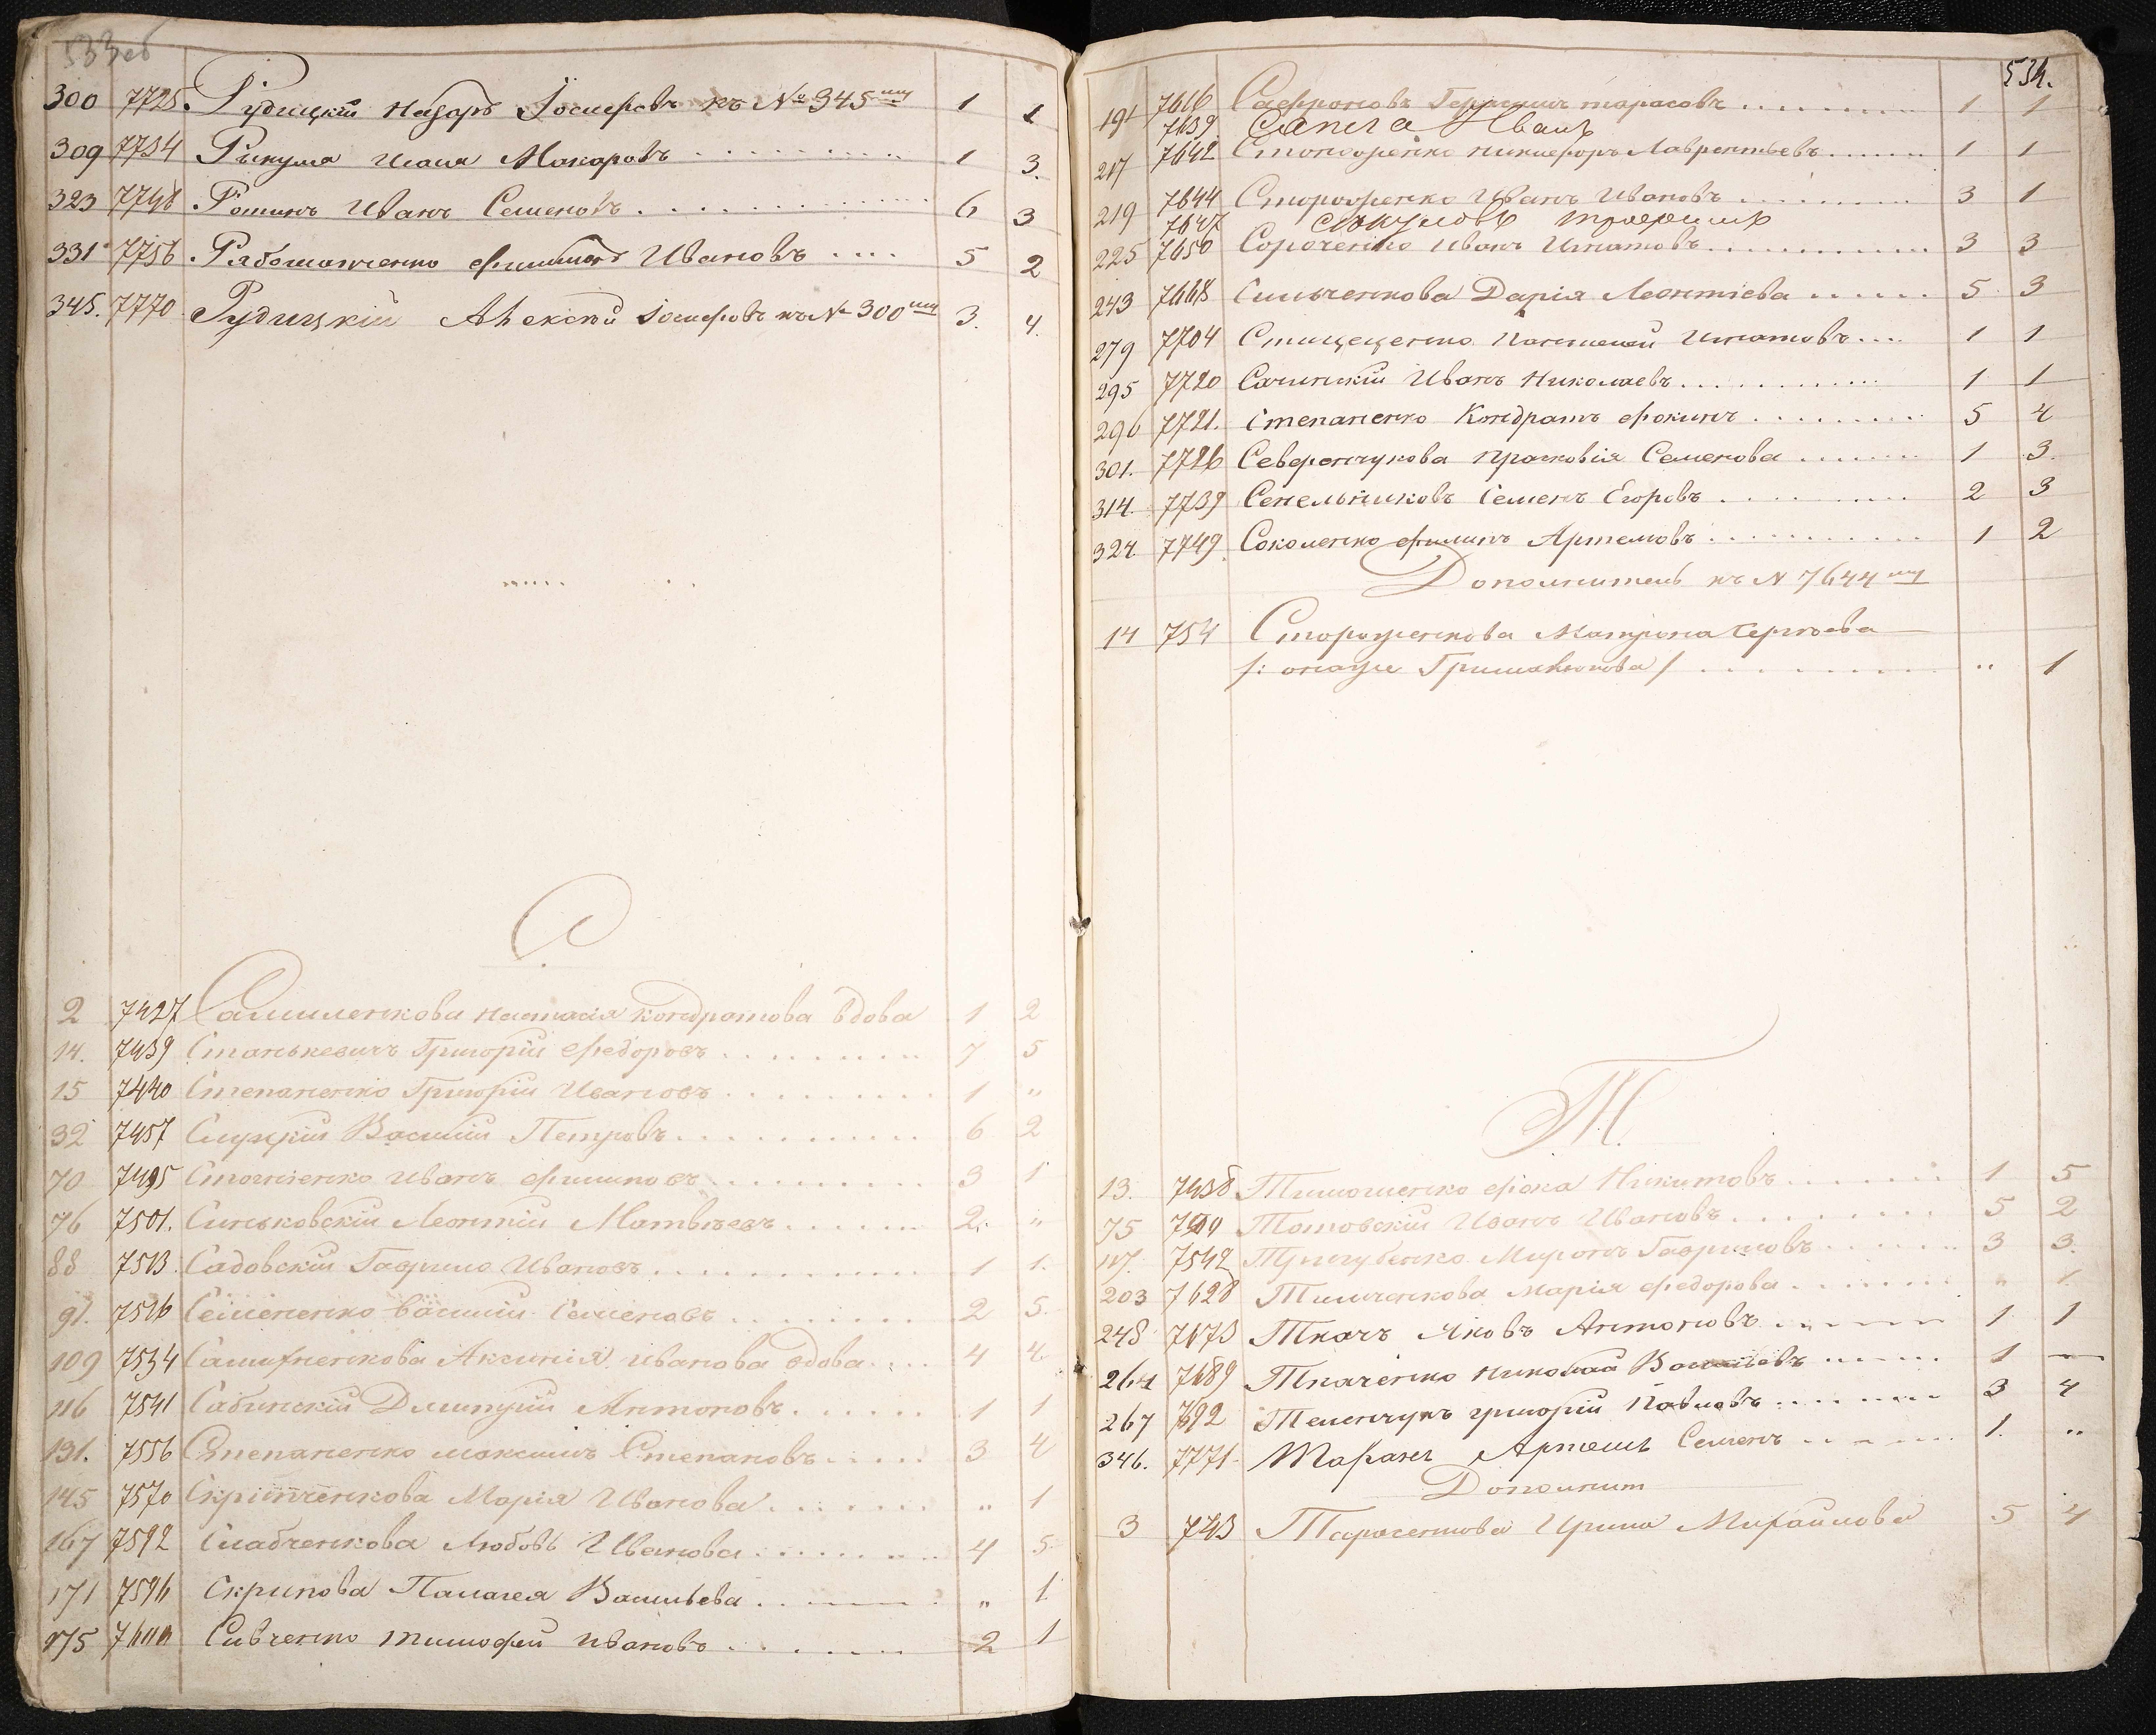 533 об
300 7725. Рудицкій Назаръ Іосифовъ къ № 345му 1 1
309 7734 Рыкума Макаровъ 1 3.
323 7748 Роминъ Иванъ Семеновъ 6 3
331 7756 Филиппъ Ивановъ 5 2
345. 7770 Рудицкій Алексѣй Іосифовъ къ № 300му 3. 4.
С.
2 7427 Самиленкова Настасія Кондратова вдова 1 2
14. 7439 Станькевичъ Григорій Федоровъ 7 5
15 7440 Степаненко Григорій Ивановъ 1 "
32 7457 Слуцкій Василій Петровъ 6 2
70 7495 Иванъ Филиповъ 3 1
76 7501. Синьковскій Леонтій Матвѣевъ 2. "
88 7513. Садовскій Гаврило Ивановъ 1 1.
91. 7516 Семененко Василій Семеновъ 2 5.
109 7534 Аксинія Иванова вдова 4 4
116 7541 Сабинскій Дмитрій Антоновъ 1 1
131. 7556 Степаненко Максимъ Степановъ 3 4
145 7570 Марія Иванова " 1
167 7592 Слабченкова Любовь Иванова 4 5.
171 7596 Скрипова Палагея Васильева " 1.
175 7600 Сивченко Тимофей Ивановъ 2 1
534.
191 7616 Сафроновъ Герасимъ Тарасовъ 1 1
7639 Сапега Иванъ
217 7642 Никифоръ Лаврентьевъ 1 1
219 7644 Стороженко Иванъ Ивановъ 3 1
7647
225 7650 Сороченко Иванъ Игнатовъ 3 3
243 7668 Сильченкова Дарія Леонтіева 5 3
279 7704 Игнатовъ 1 1
295 7720 Сачинскій Иванъ Николаевъ 1 1
296 7721. Степаненко Кондратъ Фокинъ 5 4
301. 7726 Северенчукова Прасковія Семенова 1 3.
314. 7739 Сенельниковъ Семенъ Егоровъ 2 3
324. 7749. Соколенко Филипъ Артемовъ 1 2
Дополнитель къ № 7644му
14 754 Стороженкова Матрона Сергѣева
/: онаже / " 1
Т.
13. 7438 Тимошенко Фока Никитовъ 1 5
75 7500 Томовскій Иванъ Ивановъ 5 2
117. 7542 Миронъ Гавриловъ 3 3.
203 7628 Тимченкова Марія Федорова " 1.
248 7673 Ткачъ Яковъ Антоновъ 1 1
264 7689 Ткаченко Николай Васильевъ 1 —
267 7692 Теленчукъ Григорій Павловъ 3 4
346. 7771. Таранъ Артемъ Семенъ 1. "
Дополнит
3 743 Тарасенкова Ирина Михайлова 5 4